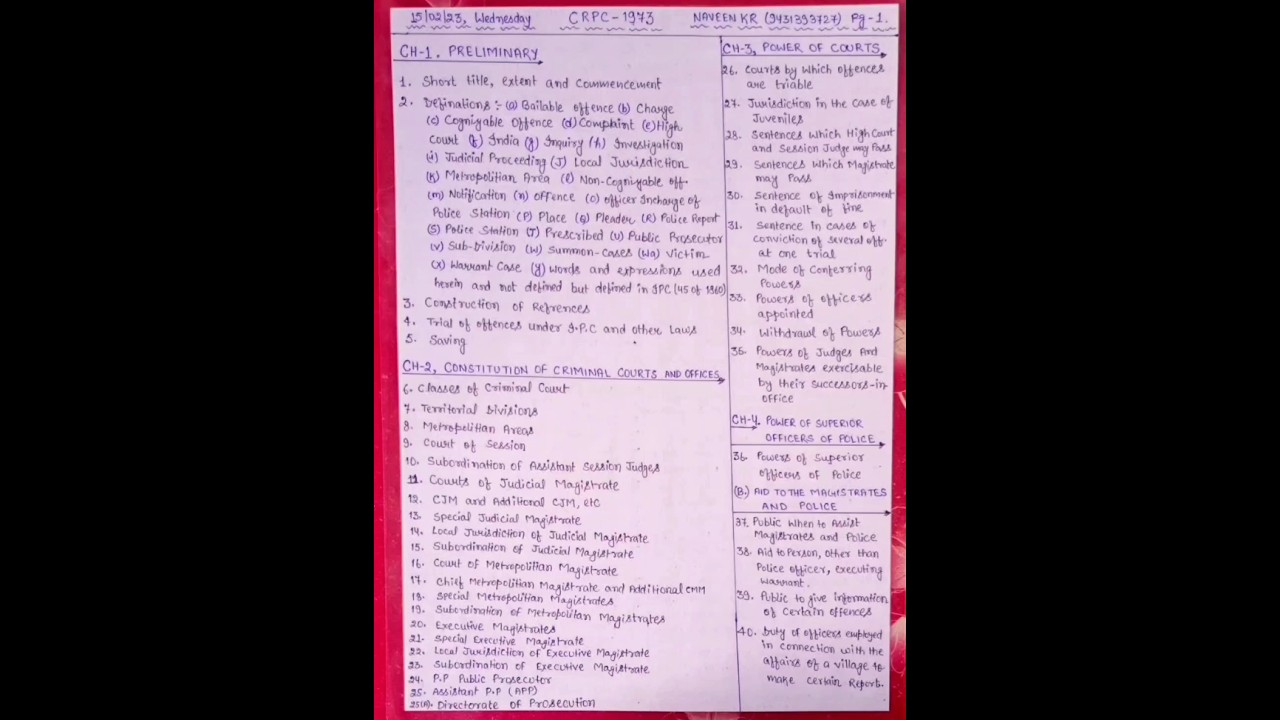 15/02/23, Wednesday CRPC-1973 NAVEEN KR (9431393727) Pg-1.
CH-1. PRELIMINARY
1. Short title, extent and Commencement
2. Definations :- (a) Bailable offence (b) Charge
(c) Cognizable Offence (d) Complaint (e) High
Court (f) India (g) Inquiry (h) Investigation
(i) Judicial Proceeding (J) Local Jurisdiction
(k) Metropolitian Area (l) Non-Cognizable off.
(m) Notification (n) offence (o) officer Incharge of
Police Station (P) Place (Q) Pleader (R) Police Report
(S) Police Station (T) Prescribed (U) Public Prosecutor
(v) Sub-Division (w) Summon-Cases (wa) Victim
(x) Warrant Case (y) words and expressions used
herein and not defined but defined in IPC (45 of 1860)
3. Construction of Refrences
4. Trial of offences under I.P.C and other Laws
5. Saving
CH-2, CONSTITUTION OF CRIMINAL COURTS AND OFFICES
6. Classes of Criminal Court
7. Territorial Divisions
8. Metropolitian Areas
9. Court of Session
10. Subordination of Assistant Session Judges
11. Courts of Judicial Magistrate
12. CJM and Additional CJM, etc
13. Special Judicial Magistrate
14. Local Jurisdiction of Judicial Magistrate
15. Subordination of Judicial Magistrate
16. Court of Metropolitan Magistrate
17. Chief Metropolitian Magistrate and Additional CMM
18. Special Metropolitian Magistrates
19. Subordination of Metropolitan Magistrates
20. Executive Magistrates
21. Special Executive Magistrate
22. Local Jurisdiction of Executive Magistrate
23. Subordination of Executive Magistrate
24. P.P Public Prosecutor
25. Assistant P.P (APP)
25(A). Directorate of Prosecution
CH-3, POWER OF COURTS
26. Courts by which offences
are triable
27. Jurisdiction in the case of
Juveniles
28. Sentences which High Court
and Session Judge may Pass
29. Sentences which Magistrate
may Pass
30. Sentence of Imprisonment
in default of fine
31. Sentence in cases of
conviction of several off.
at one trial
32. Mode of Conferring
Powers
33. Powers of officers
appointed
34. Withdrawl of Powers
35. Powers of Judges And
Magistrates exercisable
by their successors-in
office
CH-4. POWER OF SUPERIOR
OFFICERS OF POLICE
36. Powers of Superior
officers of Police
(B.) AID TO THE MAGISTRATES
AND POLICE
37. Public When to Assist
Magistrates and Police
38. Aid to Person, other than
Police officer, executing
warrant.
39. Public to give information
of Certain offences
40. Duty of officers employed
in connection with the
affairs of a village to
make certain Report.